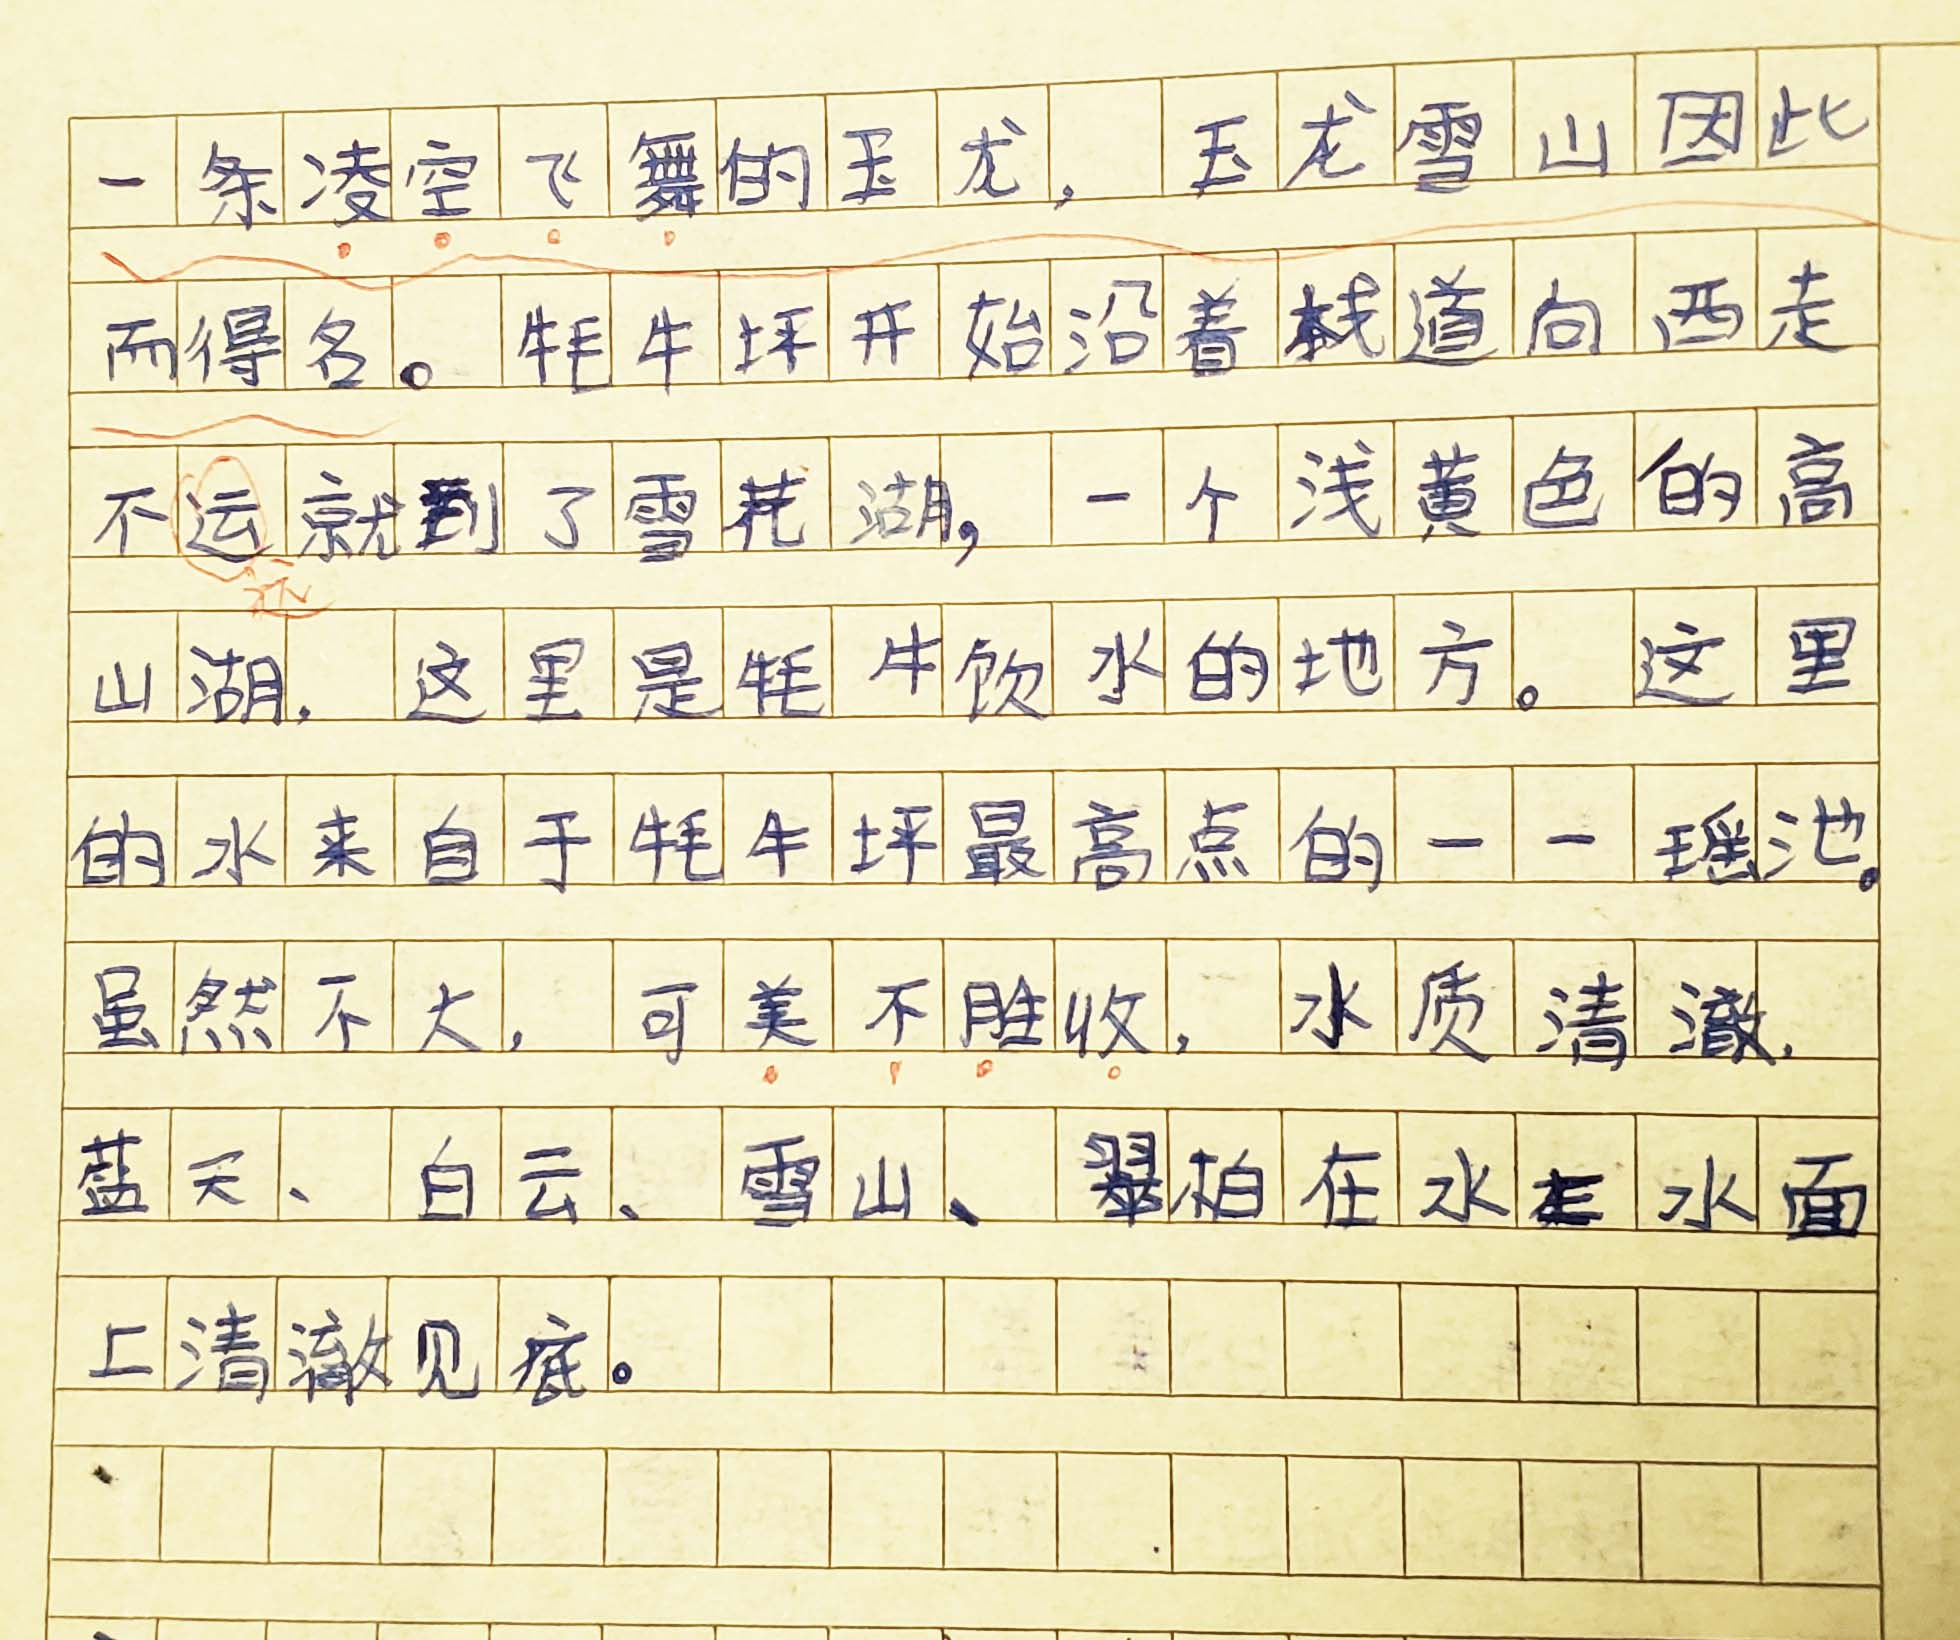 一条凌空飞舞的玉龙，玉龙雪山因此
而得名。牦牛坪开始沿着栈道向西走
不运就到了雪花湖，一个浅黄色的高
远
山湖，这里是牦牛饮水的地方。这里
的水来自于牦牛坪最高点的一一瑶池。
虽然不大，可美不胜收，水质清澈，
蓝天、白云、雪山、翠柏在水水面
上清澈见底。